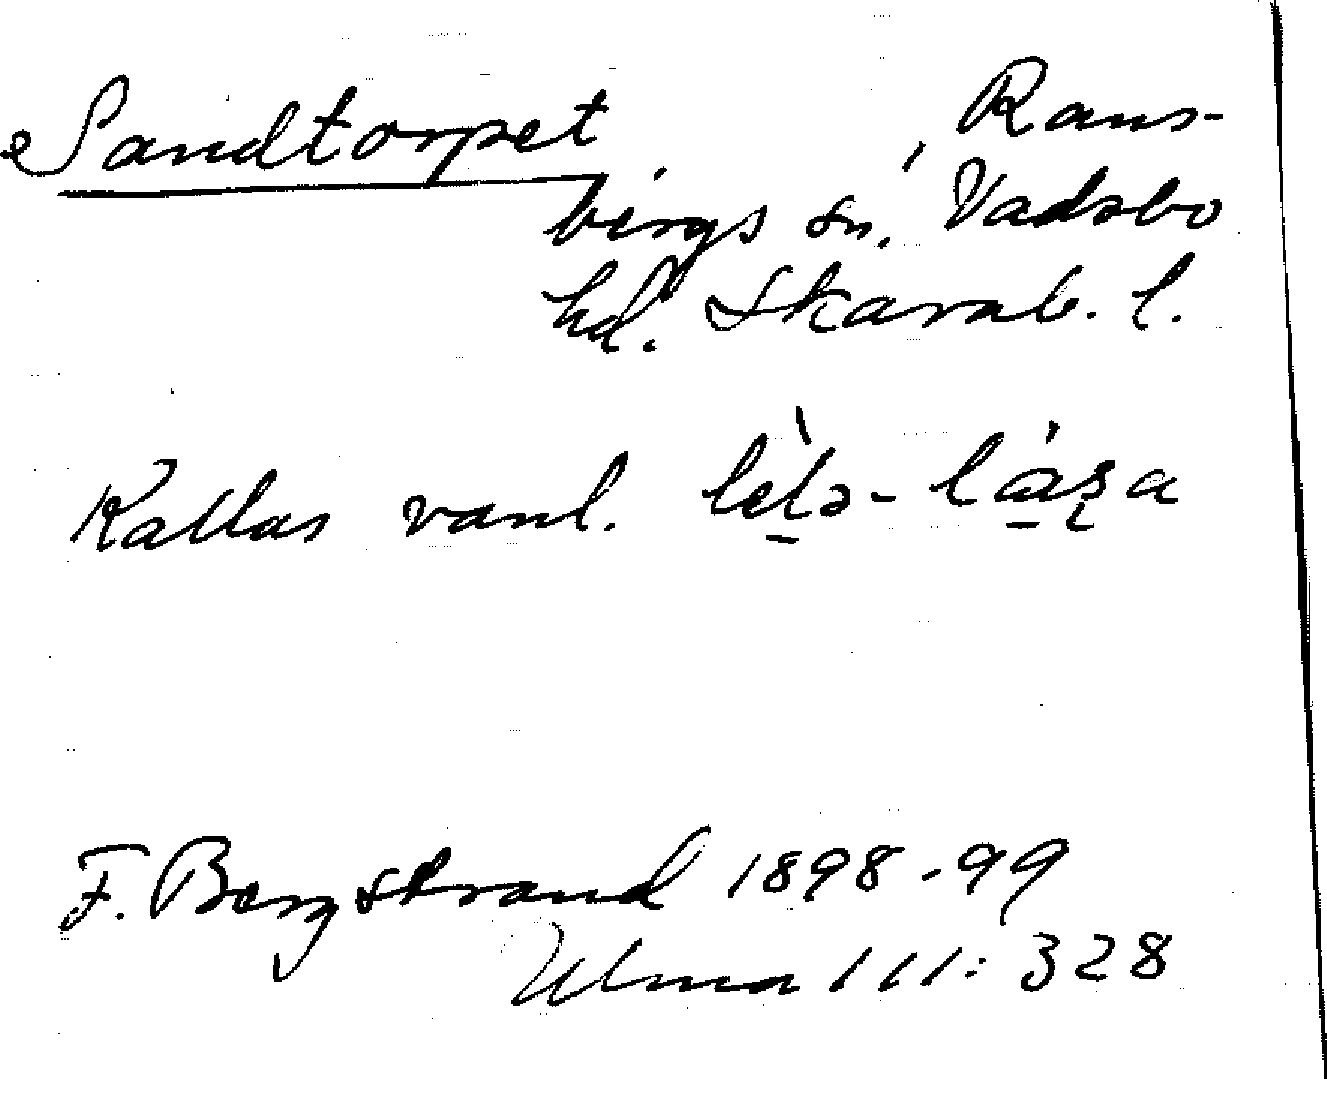 Sandtorpet, Rans-
bergs sn. Vadsbo
hd. Skarab. l.
Kallas vanl.
F. Bergstrand 1898-99
Ulma 111: 328